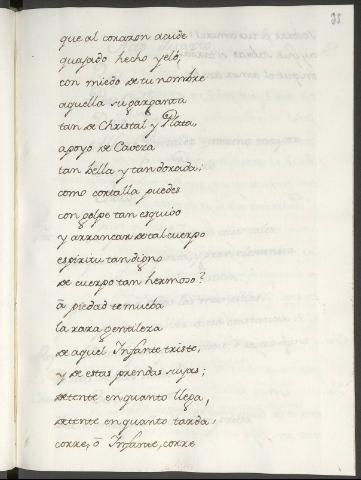 38
que al corazon acude
quajado hecho yelo;
con miedo de tu nombre
aquella su garganta
tan de Christal y Plata,
apoyo de Caveza
tan bella y tan dorada;
como cortalla puedes
con golpe tan esquivo
y arrancar de tal cuerpo
espiritu tan digno
de cuerpo tan hermoso?
à piedad te mueba
la rara gentileza
de aquel Infante triste,
y de estas prendas suyas;
detente en quanto llega,
detente en quanto tarda;
corre, ò Infante, corre